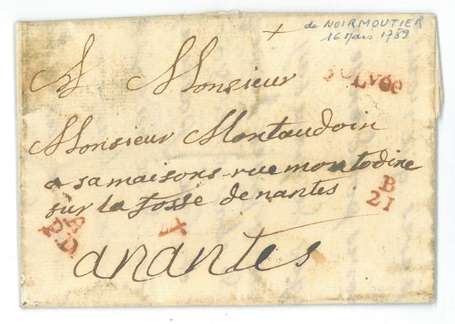 de NOIRMOUTIER
16 Mars 1789
A Monsieur
Monsieur Montaudoin
a sa maisons rue montodine
sur la fosse de nantes
B
21
anantes